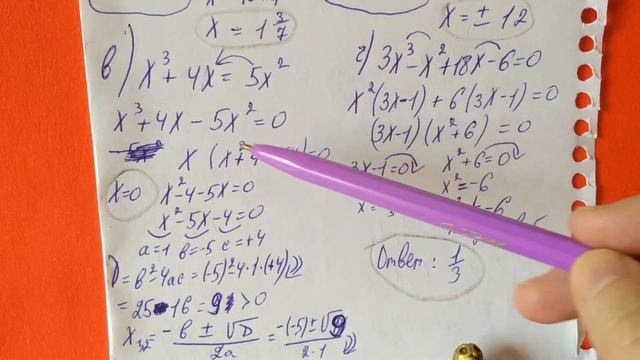 x = 1 3/7
в) x³ + 4x = 5x²
x³ + 4x - 5x² = 0
x (x² + 4
x = 0
x² - 4 - 5x = 0
x² - 5x - 4 = 0
a = 1 b = -5 c = +4
D = b² - 4ac = (-5)² - 4·1·(+4)
= 25 - 16 = 9 > 0
x₁,₂ = (-b ± √D)/2a = (-(-5) ± √9)/(2·1)
x = ± 12
г) 3x³ - x² + 18x - 6 = 0
x²(3x-1) + 6(3x-1) = 0
(3x-1)(x²+6) = 0
3x-1=0
x² + 6 = 0
x² = -6
Ответ: 1/3